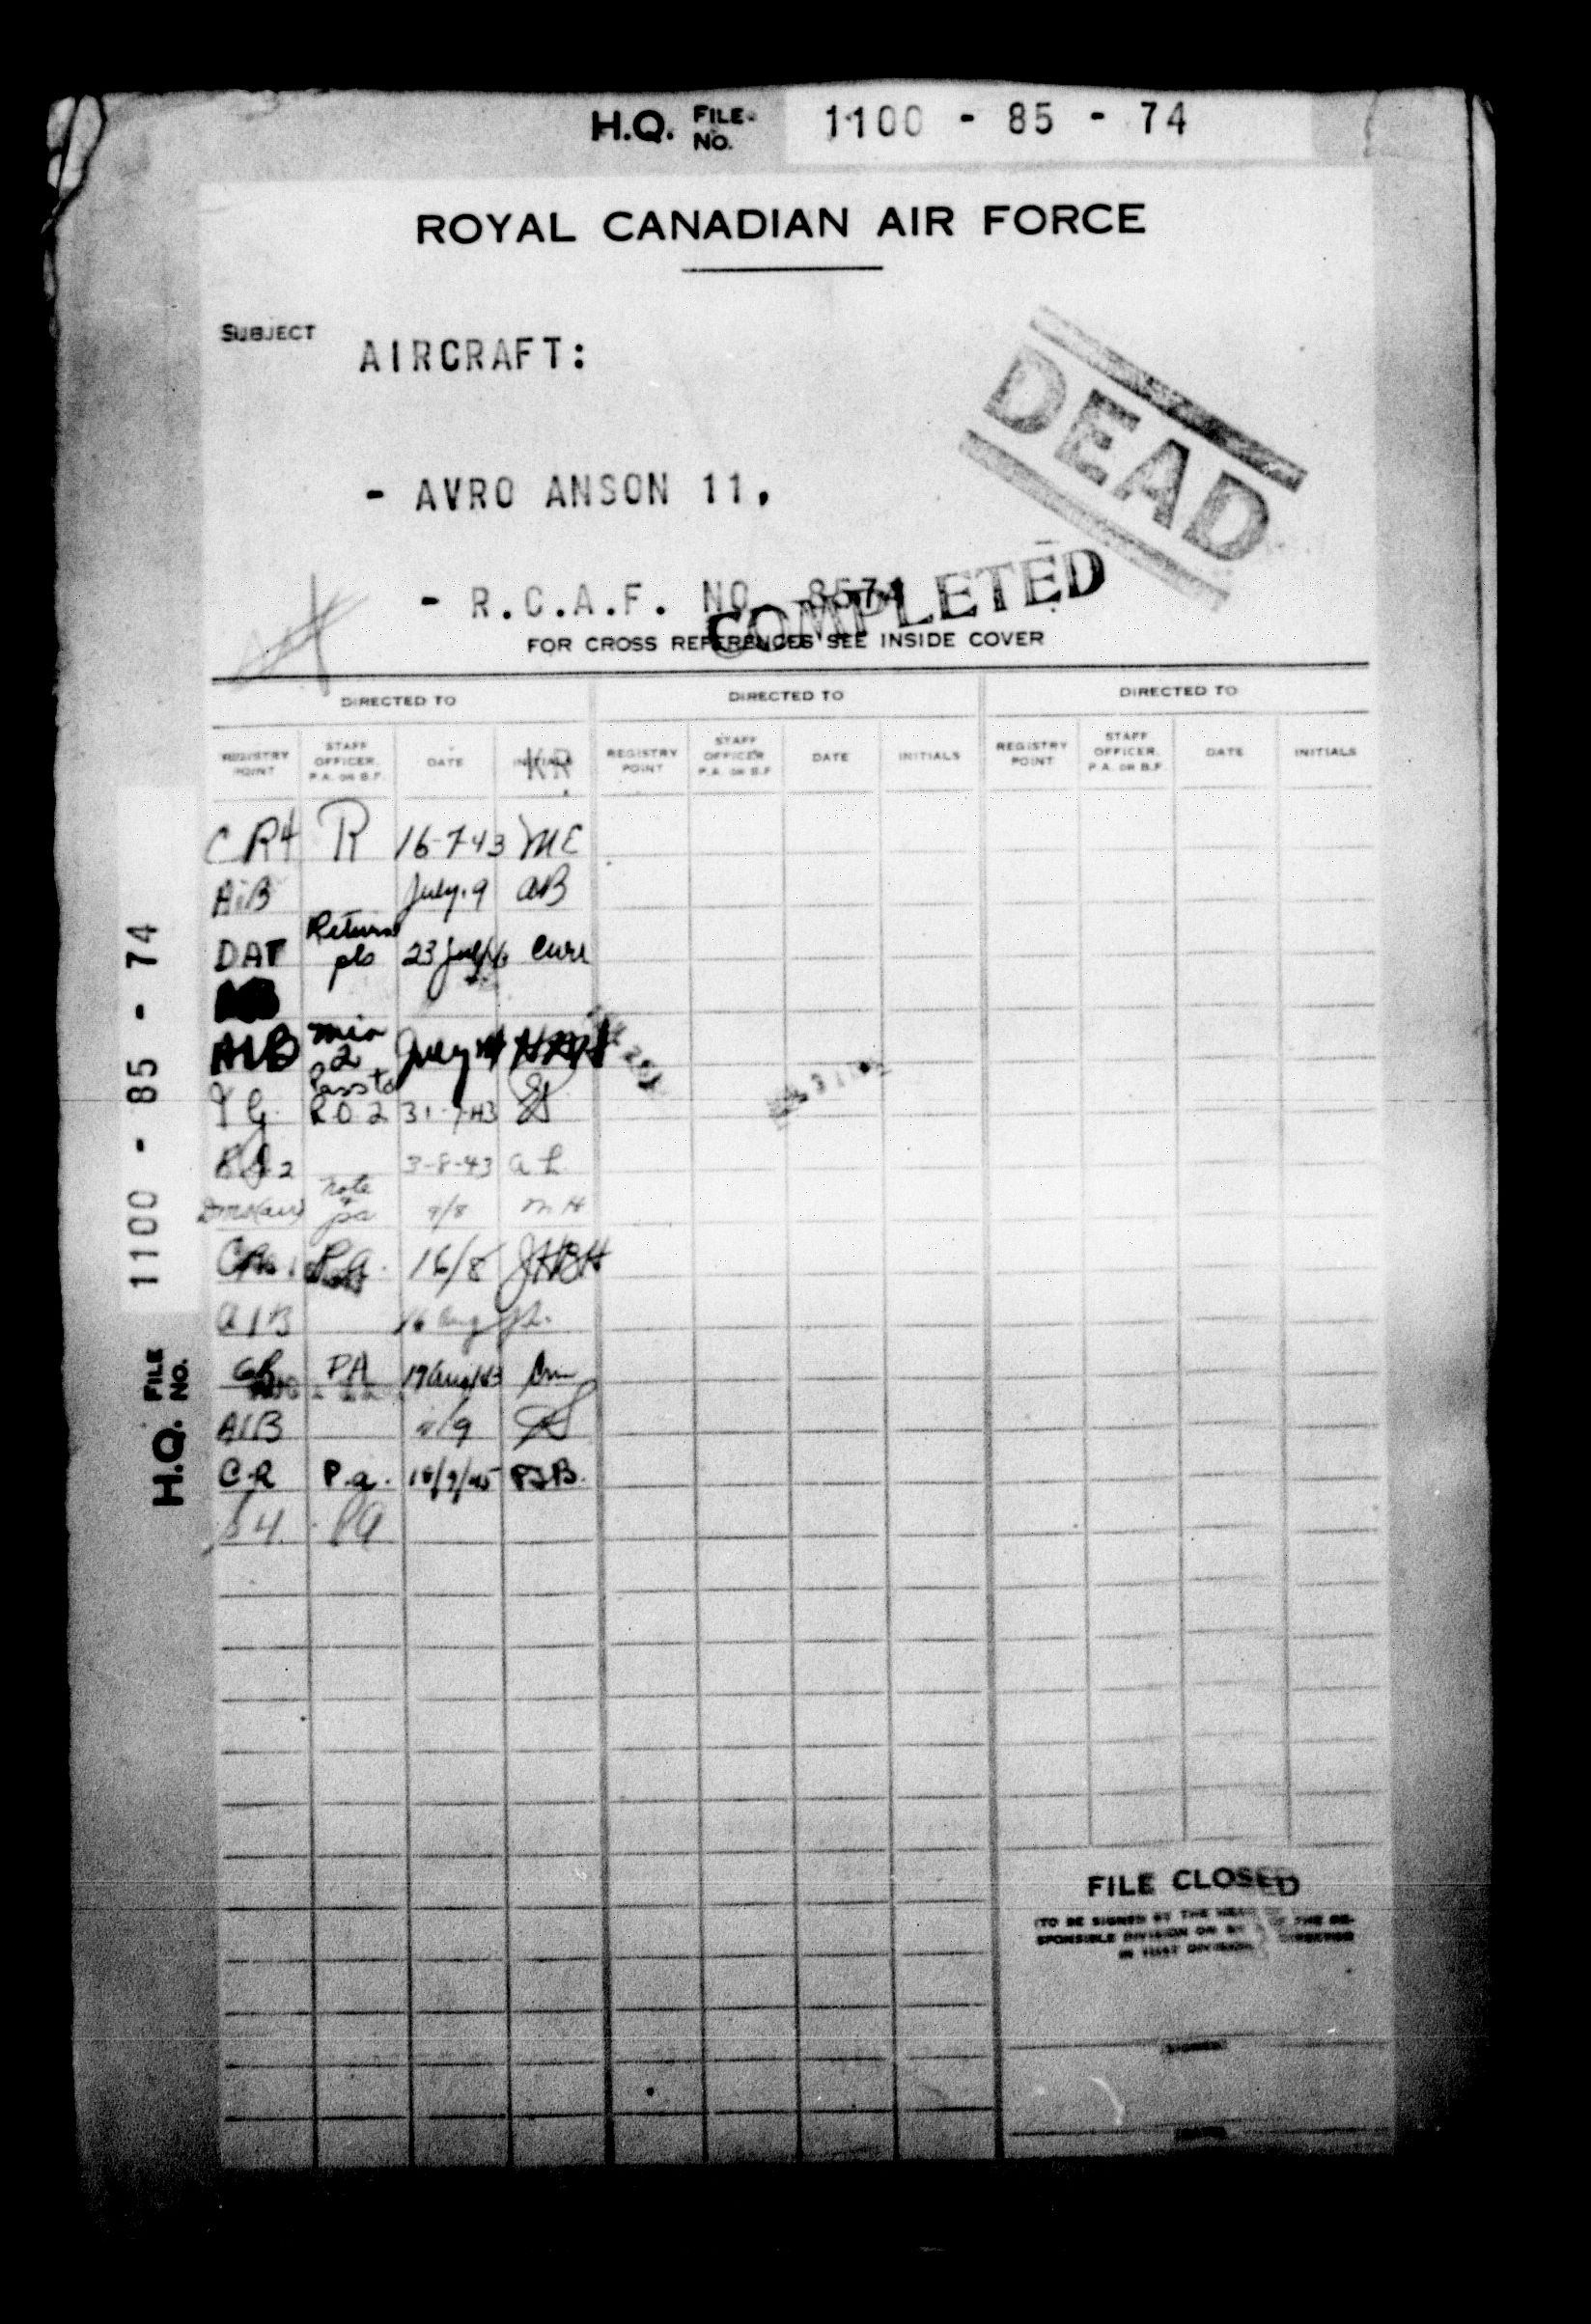 H.Q. FILE NO. 1100 - 85 - 74
ROYAL CANADIAN AIR FORCE
SUBJECT
AIRCRAFT:
DEAD
- AVRO ANSON 11.
- R.C.A.F. NO. 8574
COMPLETED
FOR CROSS REFERENCES SEE INSIDE COVER
DIRECTED TO DIRECTED TO DIRECTED TO
REGISTRY POINT STAFF OFFICER, P.A. OR B.F. DATE INITIALS REGISTRY POINT STAFF OFFICER P.A. OR B.F. DATE INITIALS REGISTRY POINT STAFF OFFICER, P.A. OR B.F. DATE INITIALS
KR
CR4 R 16-7-43 ME
AIB July 9 AB
DAT Return pls 23 July
AIB min 2 July
Pass to R.O 2 31-7-43
3-8-43 a L
note pa 9/8 M H
P.A. 16/8 JHBH
AIB 16 Aug
CR PA 17 Aug/43
AIB /9
C.R P.a. 18/9/45 PJB.
S4 PA
H.Q. FILE NO. 1100 - 85 - 74
FILE CLOSED
(TO BE SIGNED BY THE HEAD OF THE RE-
SPONSIBLE DIVISION OR BY A DIRECTOR
IN THAT DIVISION)
SIGNED